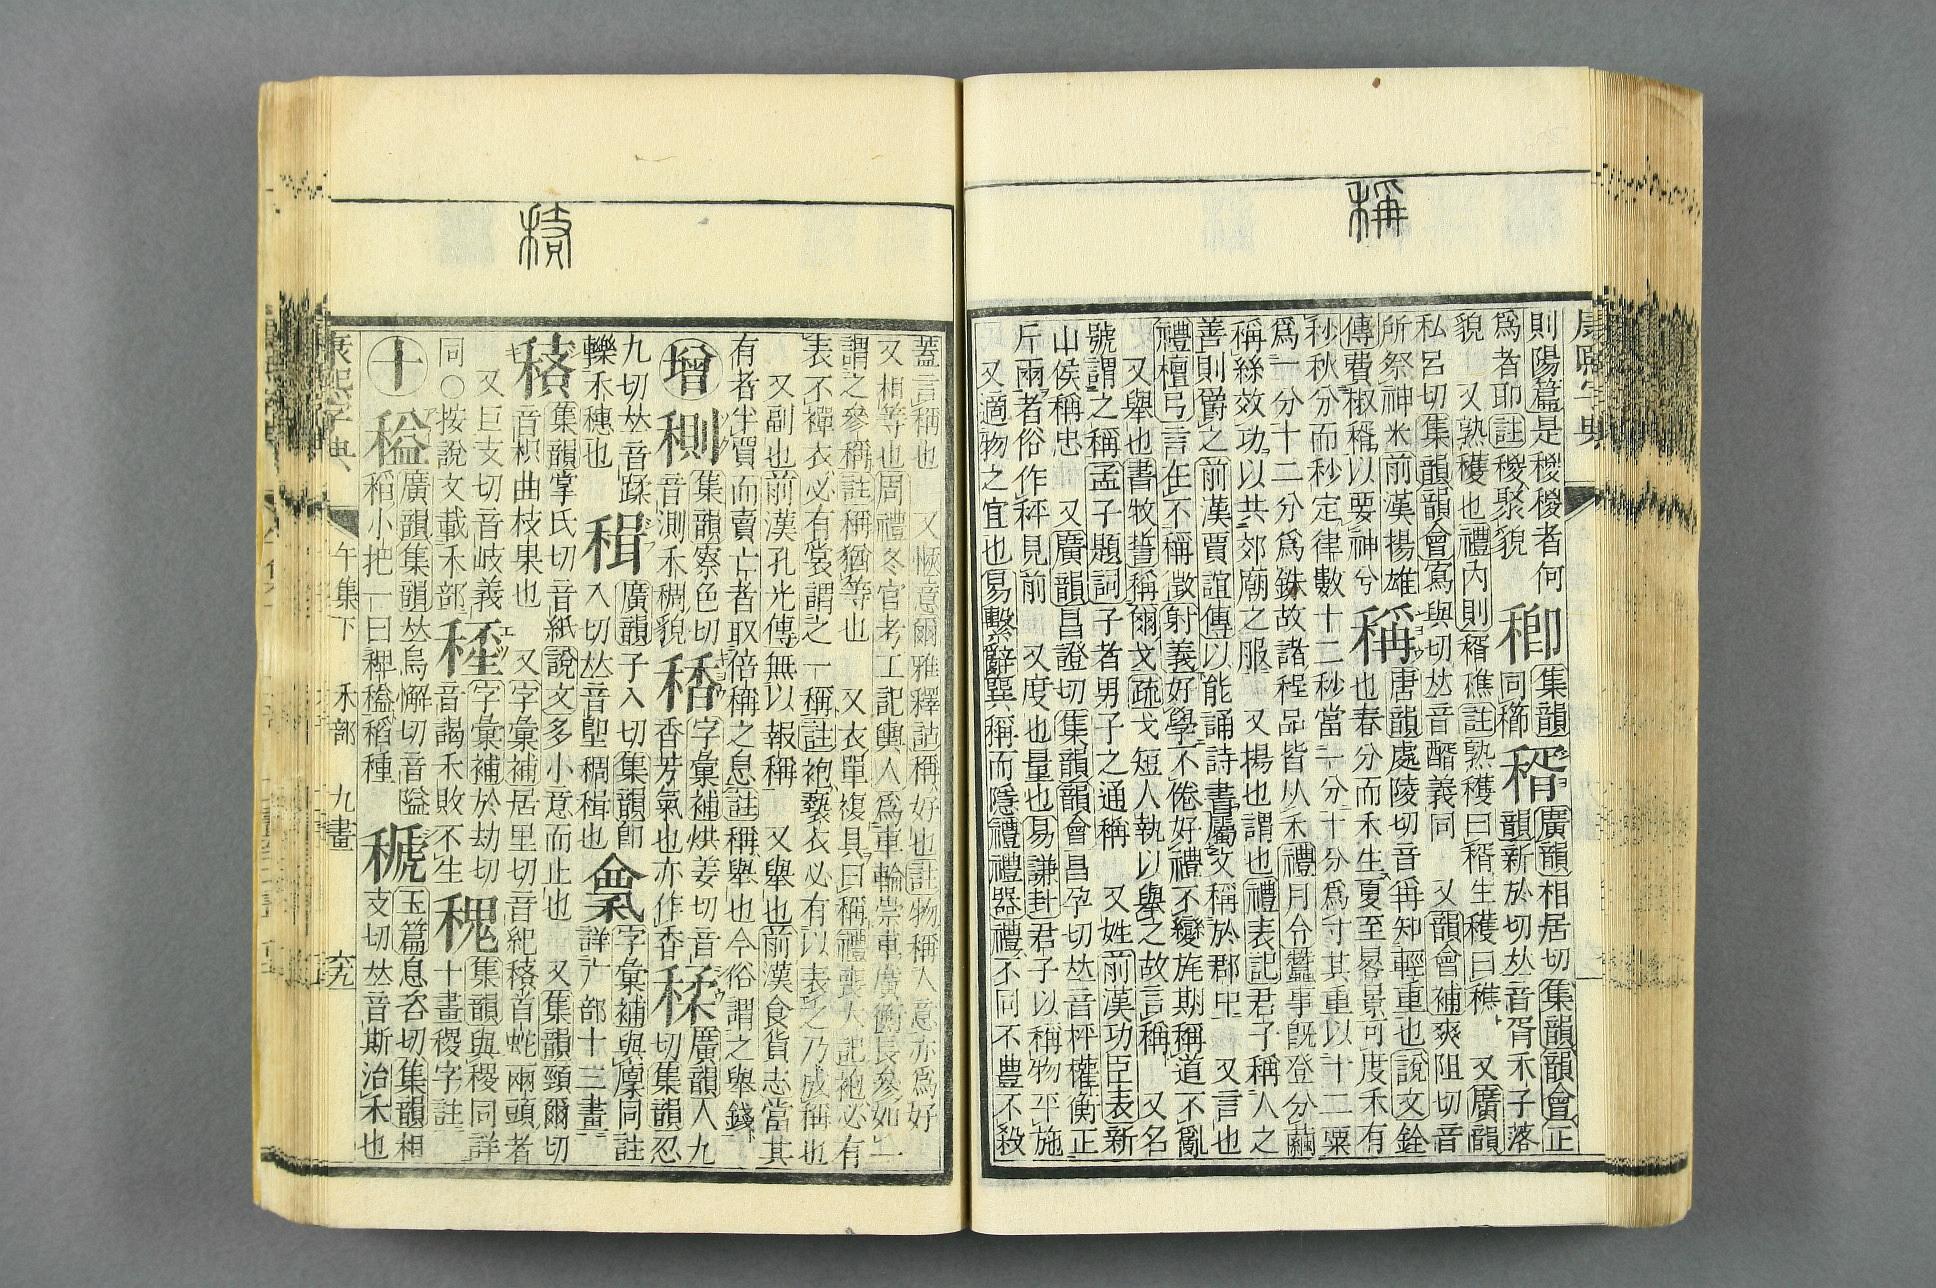 稱
康熙字典
則陽篇是稯稯者何
爲者耶註稯聚貌
稝集韻同櫛
貌 又熟穫也禮內則稰穛註熟穫曰稰生穫曰穛 又廣韻
稰廣韻相居切集韻韻會正韻新於切𠀤音胥禾子落
私呂切集韻韻會寫與切𠀤音醑義同 又韻會補爽阻切音
所祭神米前漢揚雄傳費椒稰以要神兮
稱唐韻處陵切音爯知輕重也說文銓也春分而禾生夏至晷景可度禾有
秒秋分而秒定律數十二秒當一分十分爲寸其重以十二粟
爲一分十二分爲銖故諸程品皆从禾禮月令蠶事旣登分繭
稱絲效功以共郊廟之服 又揚也謂也禮表記君子稱人之
善則爵之前漢賈誼傳以能誦詩書屬文稱於郡中 又言也
禮檀弓言在不稱徵射義好學不倦好禮不變旄期稱道不亂
又舉也書牧誓稱爾戈疏戈短人執以舉之故言稱 又名
號謂之稱孟子題詞子者男子之通稱 又姓前漢功臣表新
山侯稱忠 又廣韻昌證切集韻韻會昌孕切𠀤音秤權衡正
斤兩者俗作秤見前 又度也量也易謙封君子以稱物平施
又適物之宜也易繫辭巽稱而隱禮禮器禮不同不豐不殺
𥠖
蓋言稱也 又愜意爾雅釋詁稱好也註物稱人意亦爲好
又相等也周禮冬官考工記輿人爲車輪崇車廣衡長參如一
謂之參稱註稱猶等也 又衣單複具曰稱禮喪大記袍必有
表不襌衣必有裳謂之一稱註袍褻衣必有以表之乃成稱也
又副也前漢孔光傳無以報稱 又舉也前漢食貨志當其
有者半賈而賣亡者取倍稱之息註稱舉也今俗謂之舉錢
增 稝集韻察色切音測禾稠貌
䅨字彙補烘姜切音香芳氣也亦作香
䅦廣韻人九切集韻忍九切𠀤音蹂轢禾穗也
稝廣韻子入切集韻卽入切𠀤音堲稠稝也
字彙補與廩同註詳广部十三畫
𥠖集韻掌氏切音紙說文多小意而止也 又集韻頸爾切音枳曲枝果也 又字彙補居里切音紀𥠖首蛇兩頭者
又巨支切音岐義同○按說文載禾部
字彙補於劫切音謁禾敗不生
集韻與稷同詳十畫稷字註
十 廣韻集韻𠀤烏懈切音隘稻小把一曰稗䅬稻種
玉篇息咨切集韻相支切𠀤音斯治禾也
康熙字典 午集下 禾部 九畫 六九